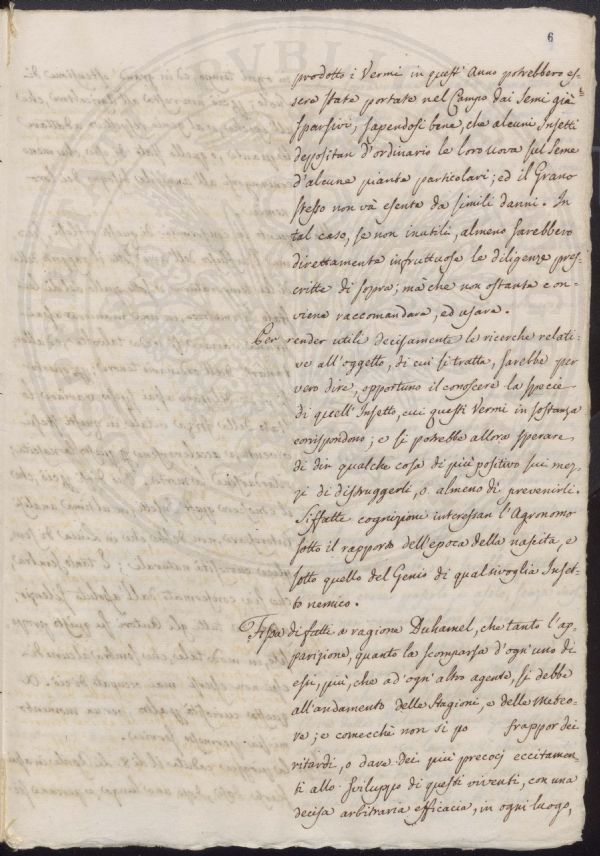 6
prodotto i Vermi in quest' Anno potrebbero es-
sere state portate nel Campo dai Semi già
sparsivi; sapendosi bene, che alcuni Insetti
depositan d'ordinario le loro uova sul Seme
d'alcune piante particolari; ed il Grano
stesso non và esente da simili danni. In
tal caso, se non inutili, almeno sarebbero
direttamente infruttuose le diligenze pres-
critte di sopra; mà che non ostante con-
viene raccomandare, ed usare.
Per render utili decisamente le ricerche relati-
ve all'oggetto, di cui si tratta, sarebbe per
vero dire, opportuno il conoscere la specie
di quell'Insetto, cui questi Vermi in sostanza
corrispondono; e si potrebbe allora sperare
di dir qualche cosa di più positivo sui mez-
zi di distruggerli, o almeno di prevenirli.
Siffatte cognizioni interessan l'Agronomo
sotto il rapporto dell'epoca della nascita, e
sotto quello del Genio di qualsivoglia Inset-
to nemico.
Fissa di fatti a ragione Duhamel, che tanto l'ap-
parizione, quanto la scomparsa d'ogn'uno di
essi, più, che ad'ogn'altro agente, si debbe
all'andamento delle Stagioni, e delle Meteo-
re; e comecchè non si po frappor dei
ritardi, o dare dei più precoci eccitamen-
ti allo sviluppo di questi viventi, con una
decisa arbitraria efficacia, in ogni luogo,